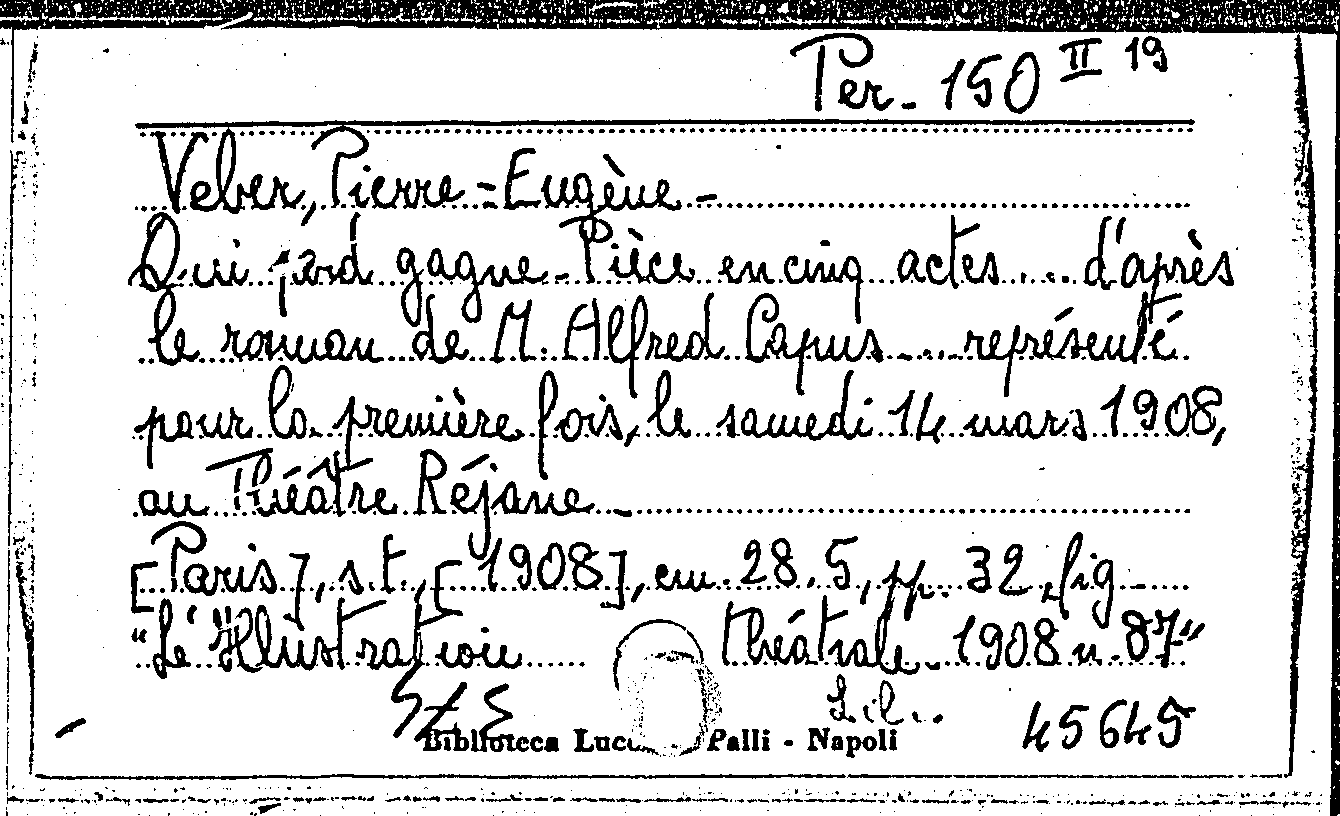 Per. 150 II 19
Veber, Pierre-Eugène -
Qui perd gagne - Pièce en cinq actes .... d'après
le roman de M. Alfred Capus .... représenté
pour la première fois, le samedi 14 mars 1908,
au Théâtre Réjane -
[Paris], s.t., [1908], cm. 28.5, pp. 32, fig
"L'Illustration théâtrale. 1908 n. 87"
45645
Biblioteca Palli - Napoli